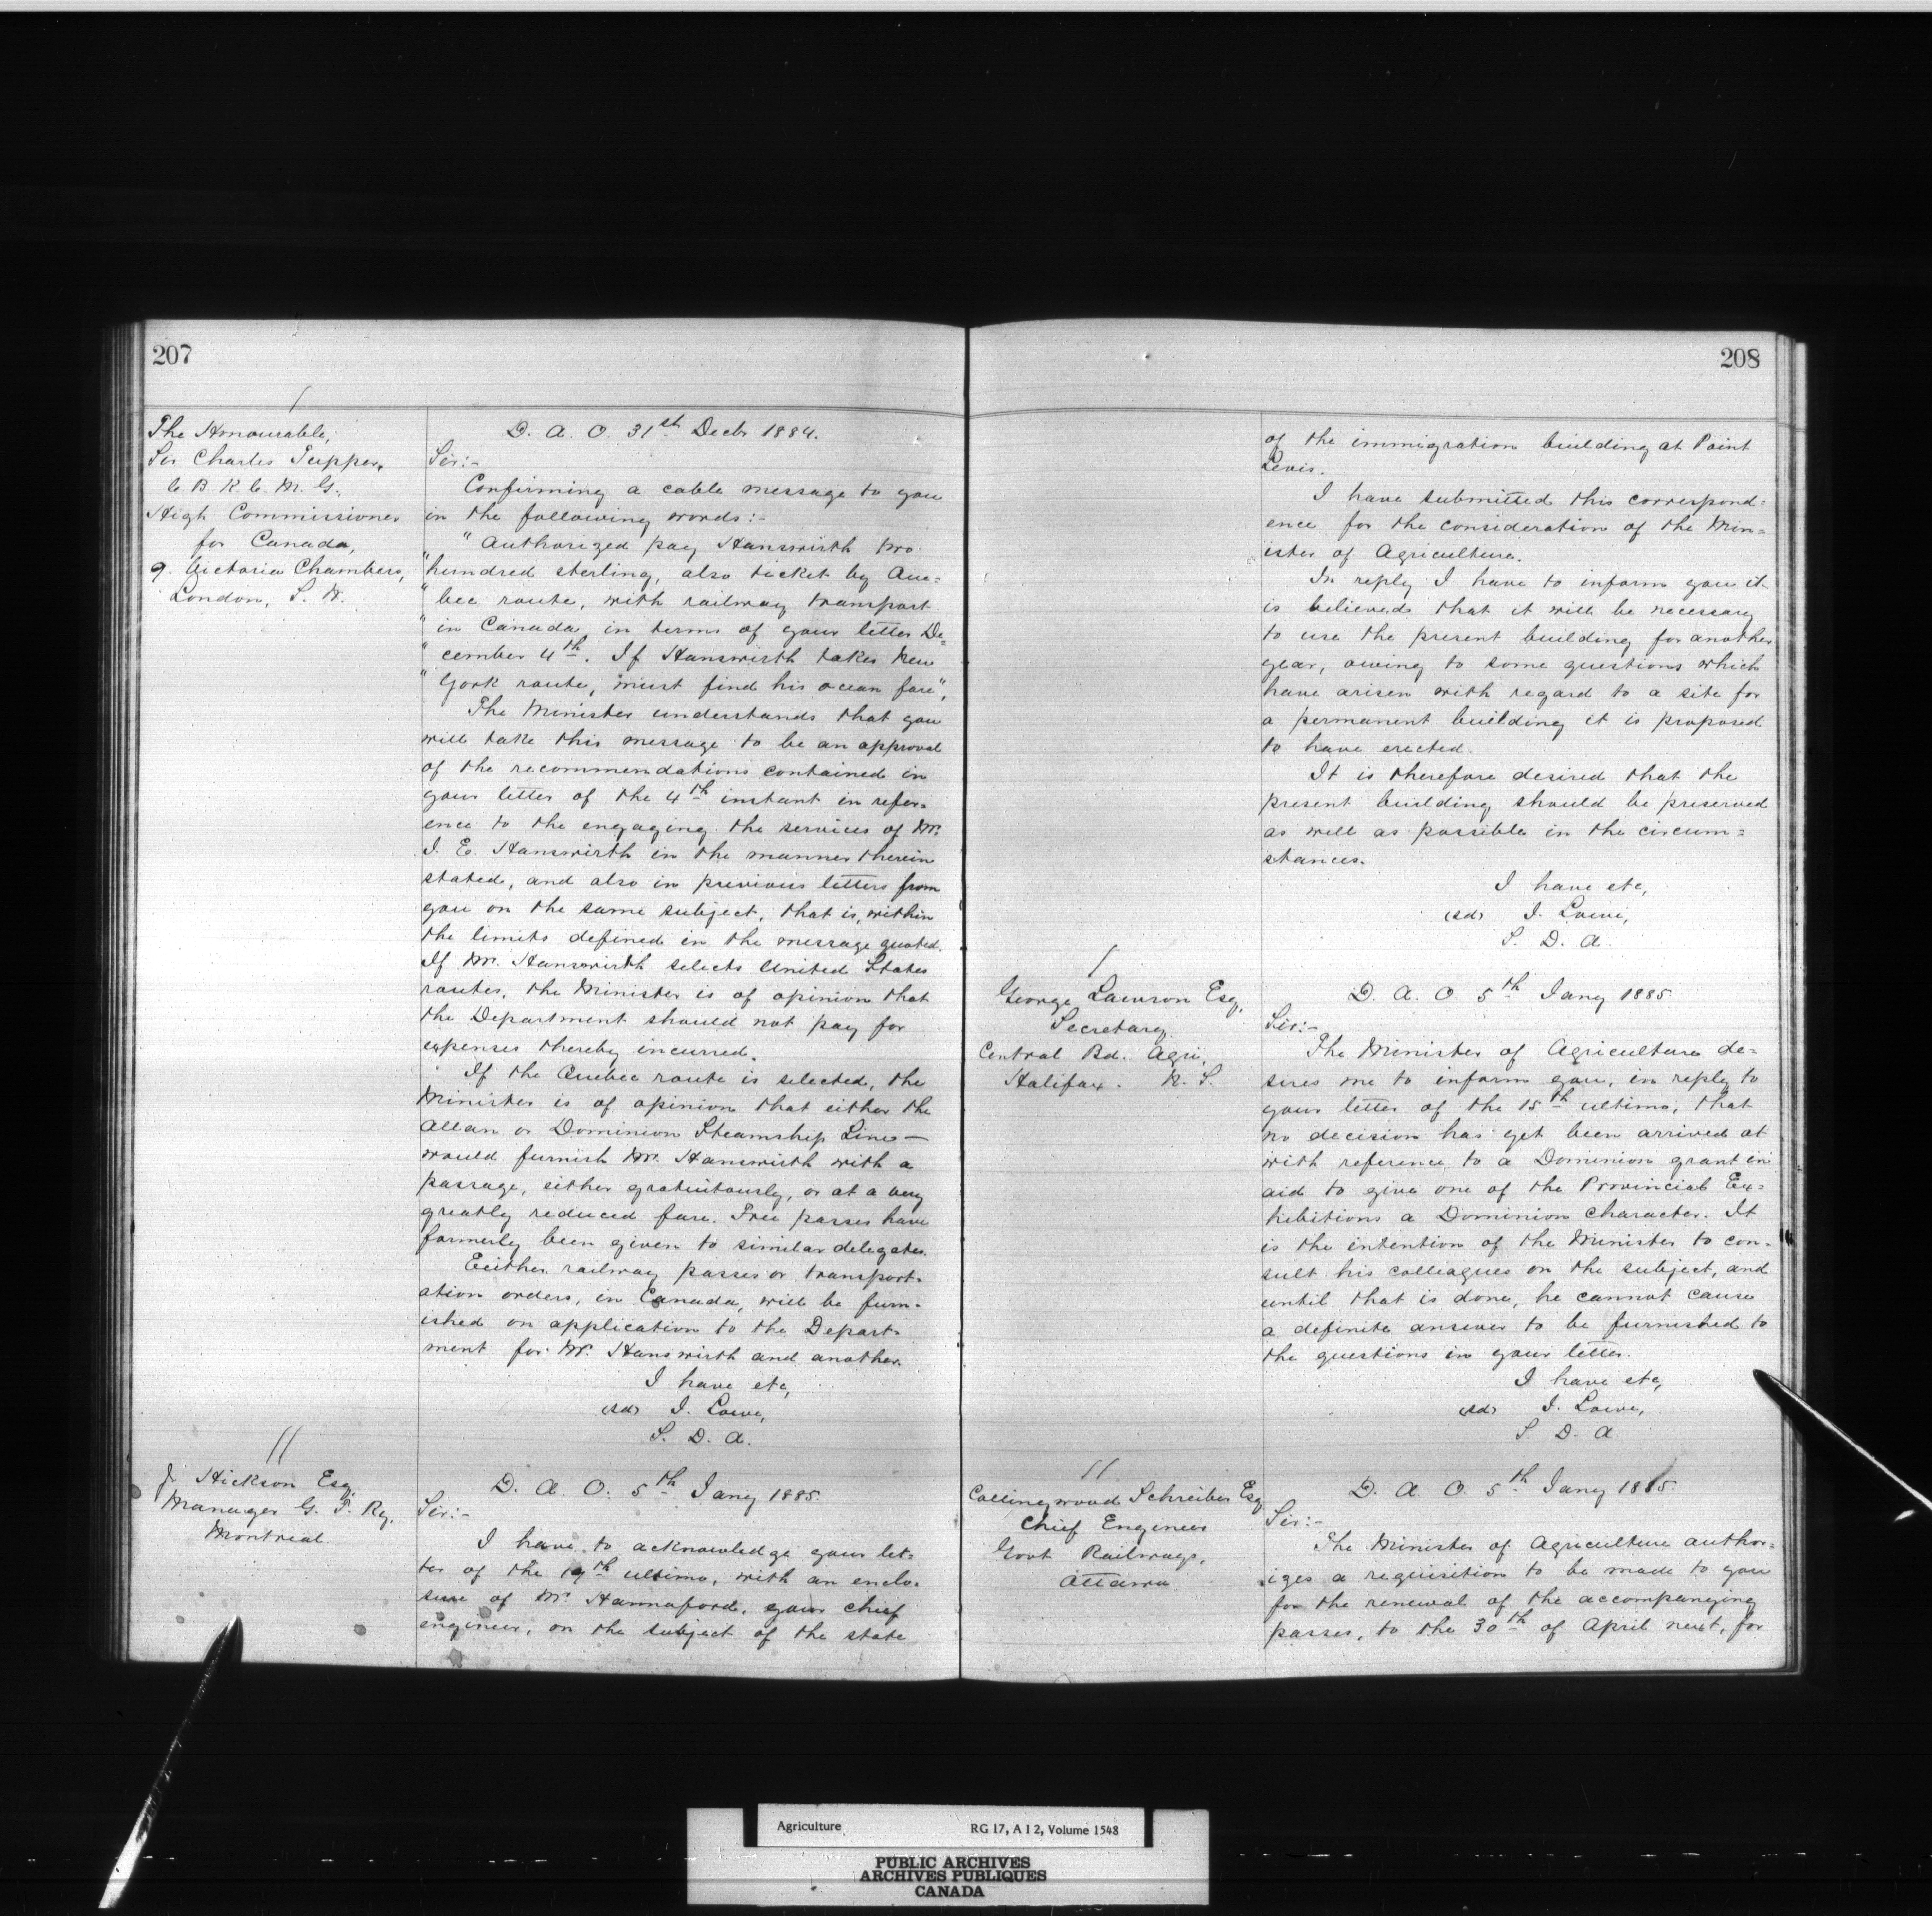 207
The Honourable,
Sir Charles Tupper,
C. B. K. C. M. G.,
High Commissioner
for Canada,
9. Victoria Chambers,
London, S. W.
D. A. O. 31st Decbr 1884.
Sir:-
Confirming a cable message to you
in the following words:-
" Authorized pay Hanswirth two
" hundred sterling, also ticket by Que=
" bec route, with railway transport
" in Canada, in terms of your letter De=
" cember 4th. If Hanswirth takes New
" York route, must find his ocean fare",
The Minister understands that you
will take this message to be an approval
of the recommendations contained in
your letter of the 4th instant in refer=
ence to the engaging the services of Mr.
J. E. Hanswirth in the manner therein
stated, and also in previous letters from
you on the same subject, that is, within
the limits defined in the message quoted.
If Mr. Hanswirth selects United States
routes, the Minister is of opinion that
the Department should not pay for
expenses thereby incurred.
If the Quebec route is selected, the
Minister is of opinion that either the
Allan or Dominion Steamship Lines—
would furnish Mr. Hanswirth with a
passage, either gratuitously, or at a very
greatly reduced fare. Free passes have
formerly been given to similar delegates.
Eeither railway passes or transport=
ation orders, in Canada, will be furn=
ished on application to the Depart=
ment for Mr. Hanswirth and another.
I have etc,
(sd) J. Lowe,
S. D. A.
J. Hickson Esq,
Manager G. T. Ry.
Montreal.
D. A. O. 5th Jany 1885.
Sir:-
I have to acknowledge your let=
ter of the 19th ultimo, with an enclo=
sure of Mr Hannaford, your chief
engineer, on the subject of the state
208
of the immigration building at Point
Levis.
I have submitted this correspond=
ence for the consideration of the Min=
ister of Agriculture.
In reply I have to inform you it
is believed that it will be necessary
to use the present building for another
year, owing to some questions which
have arisen with regard to a site for
a permanent building it is proposed
to have erected.
It is therefore desired that the
present building should be preserved
as well as possible in the circum=
stances.
I have etc,
(sd) J. Lowe,
S. D. A.
George Lawson Esq,
Secretary
Central Bd. Agri,
Halifax. N. S.
D. A. O. 5th Jany 1885.
Sir:-
The Minister of Agriculture de=
sires me to inform you, in reply to
your letter of the 15th ultimo, that
no decision has yet been arrived at
with reference to a Dominion grant in
aid to give one of the Provincial Ex=
hibitions a Dominion character. It
is the intention of the Minister to con=
sult his colleagues on the subject, and
until that is done, he cannot cause
a definite answer to be furnished to
the questions in your letter.
I have etc,
(sd) J. Lowe,
S. D. A
Collingwood Schreiber Esq
Chief Engineer
Govt Railways,
Ottawa
D. A. O. 5th Jany 1885.
Sir:-
The Minister of Agriculture author=
izes a requisition to be made to you
for the renewal of the accompanying
passes, to the 30th of April next, for
Agriculture RG 17, A I 2, Volume 1548
PUBLIC ARCHIVES
ARCHIVES PUBLIQUES
CANADA